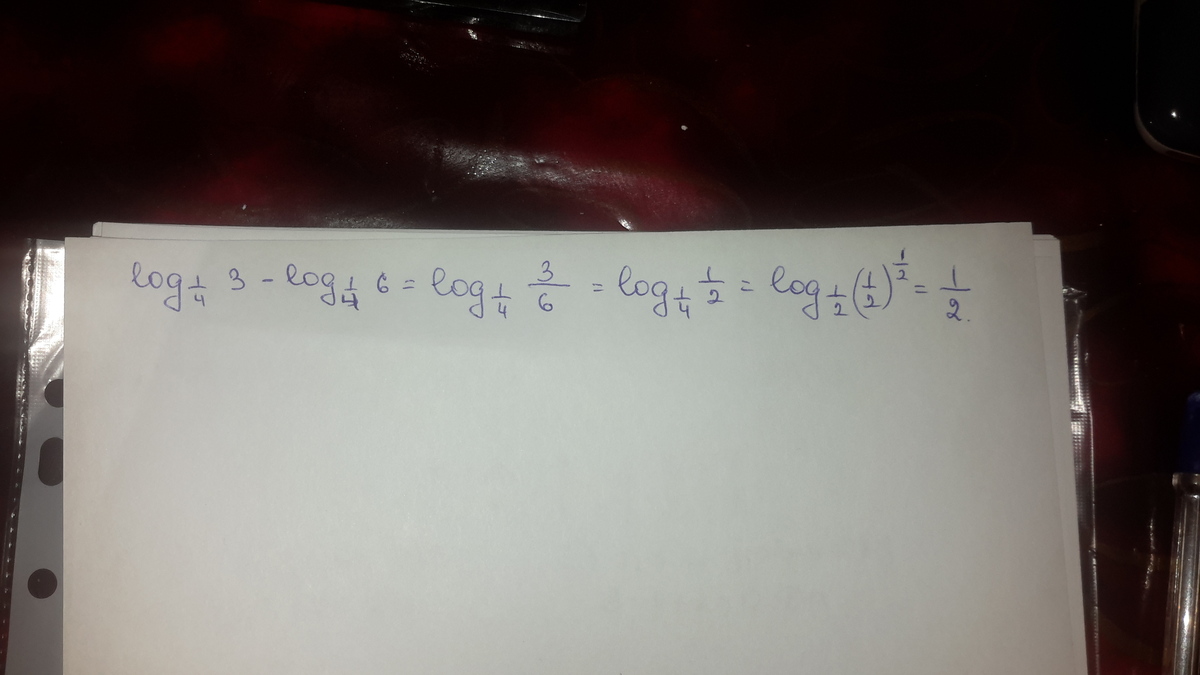 log_{1/4} 3 - log_{1/4} 6 = log_{1/4} 3/6 = log_{1/4} 1/2 = log_{1/2} (1/2)^{1/2} = 1/2.